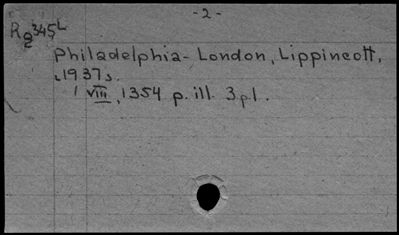 -2-
R
e345L
Philadelphia-London, Lippincott,
c1937.
1 VIII, 1354 p. ill. 3 pl.